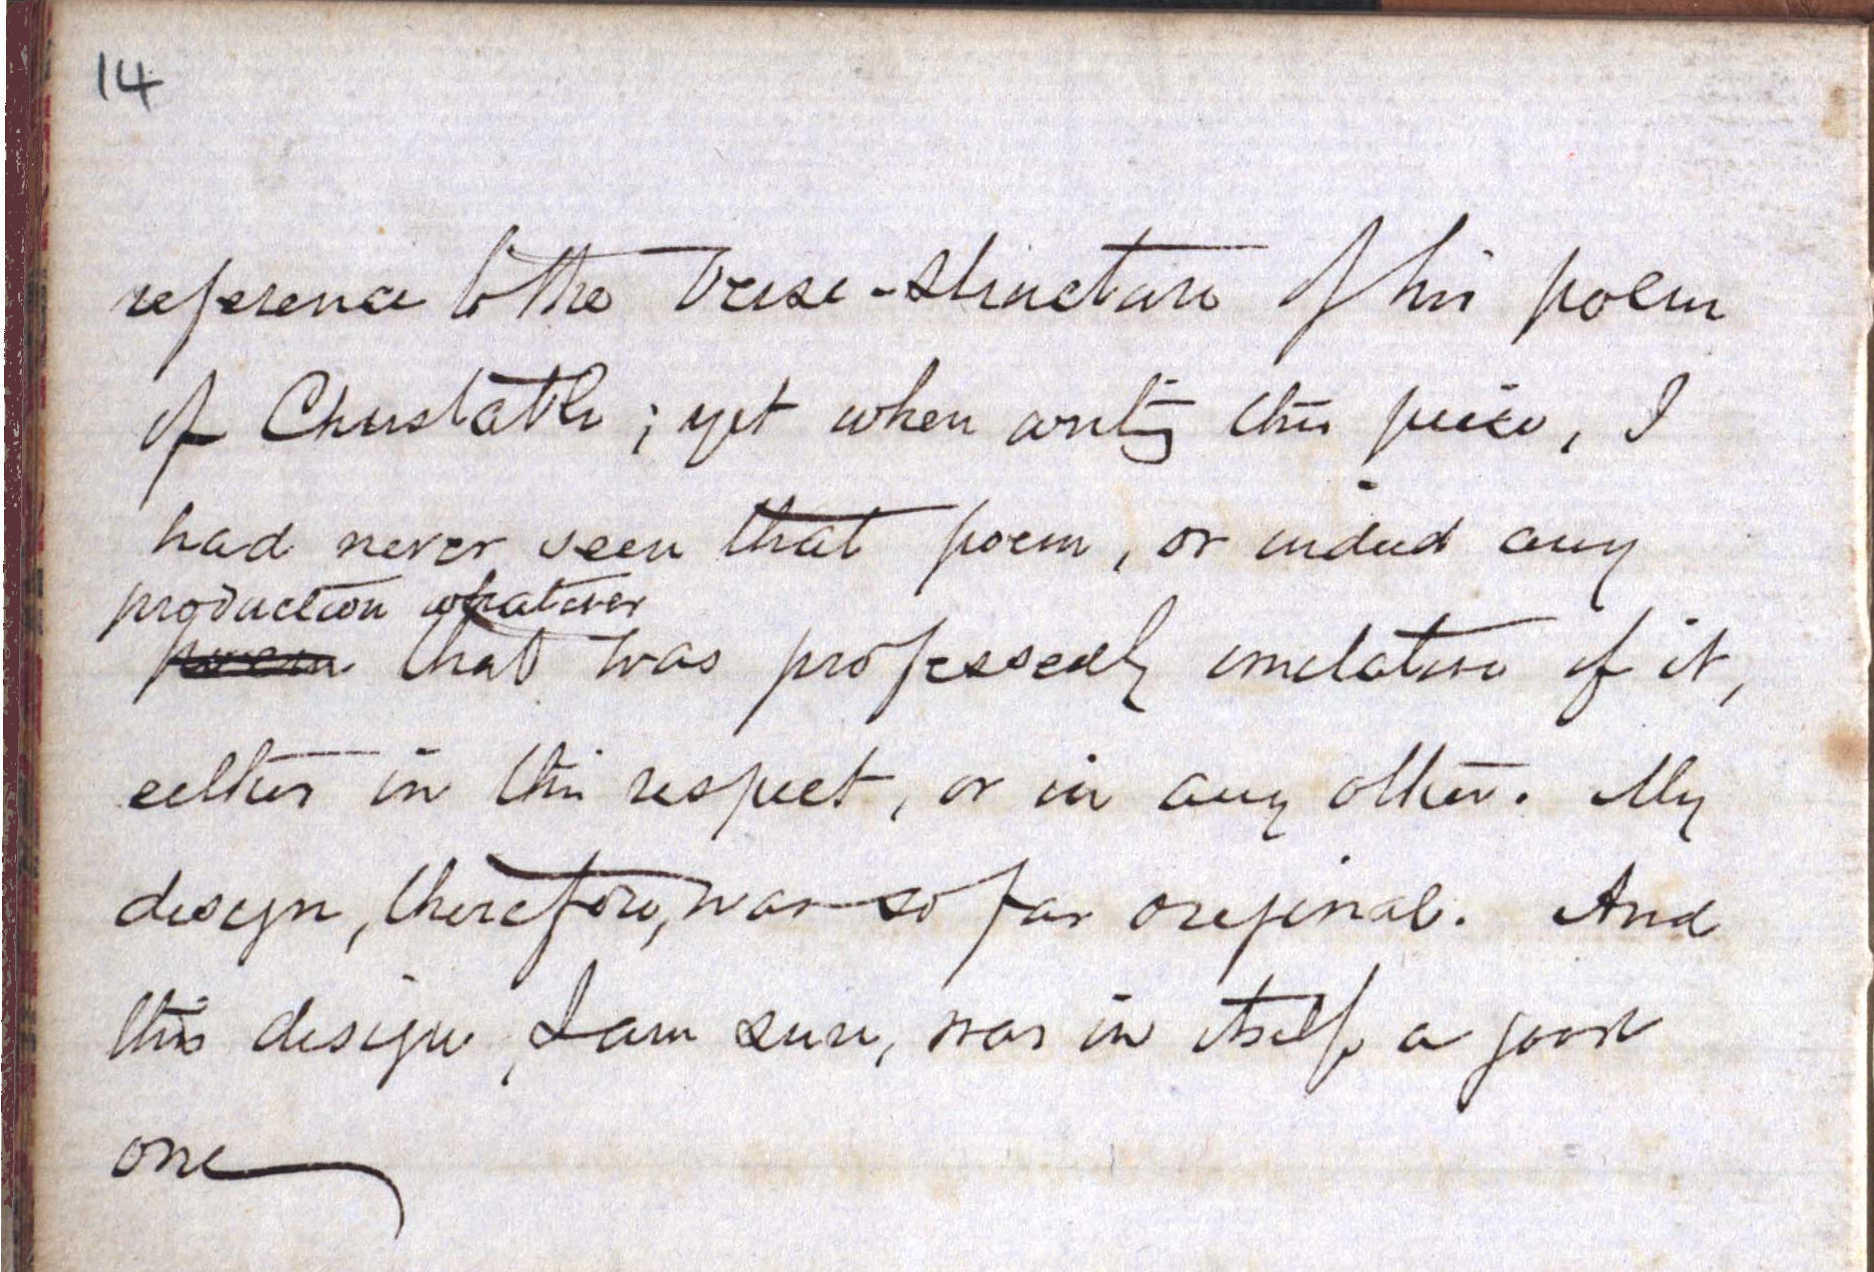 14
reference to the Verse-structure of his poem
of Christabel; yet when writing this piece, I
had never seen that poem, or indeed any
production whatever
poem that was professedly imitative of it,
either in this respect, or in any other. My
design, therefore, was so far original. And
this design, I am sure, was in itself a good
one